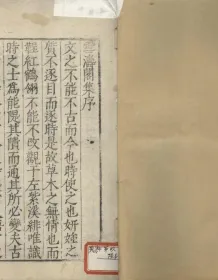 雪濤閣集序
文之不能不古而今也時使之也妍媸之
質不逐目而逐時是故草木之無情也而
鞓紅鶴翎不能不改觀于左紫溪緋唯識
時之士爲能隄其隤而通其所必變夫古